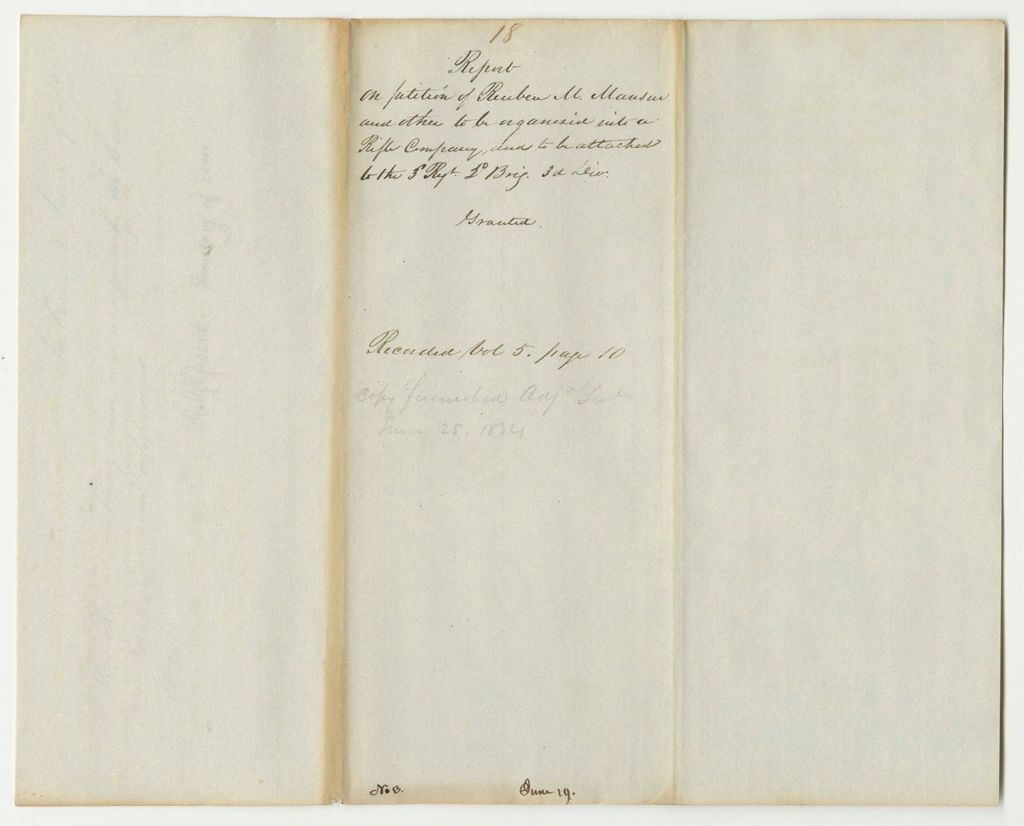 18
Report
on petition of Reuben M. Mansur
and other to be organised into a
Rifle Company, and to be attached
to the 5 Regt. 2d Brig. 3d Div.
Granted.
Recorded Vol 5. page 10
Copy furnished Adjt Genl
June 25. 1834
No 3.
June 19.